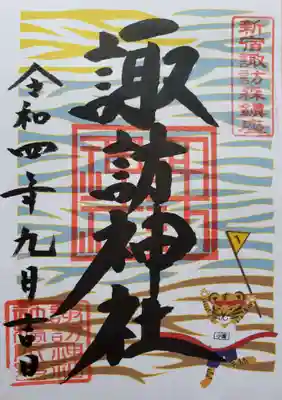 新宿諏訪森鎮座
諏訪神社
令和四年九月吉日
1